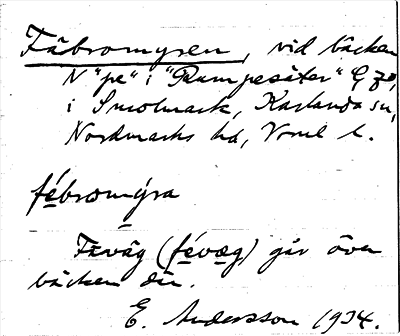 Fäbromyren, vid bäcken
N "pe" i "Rumpesäter" G 70,
i Smolmark, Karlanda sn,
Nordmarks hd, Vrml l.
fébromýra
Fäväg (févæg) går över
bäcken där.
E. Andersson 1934.